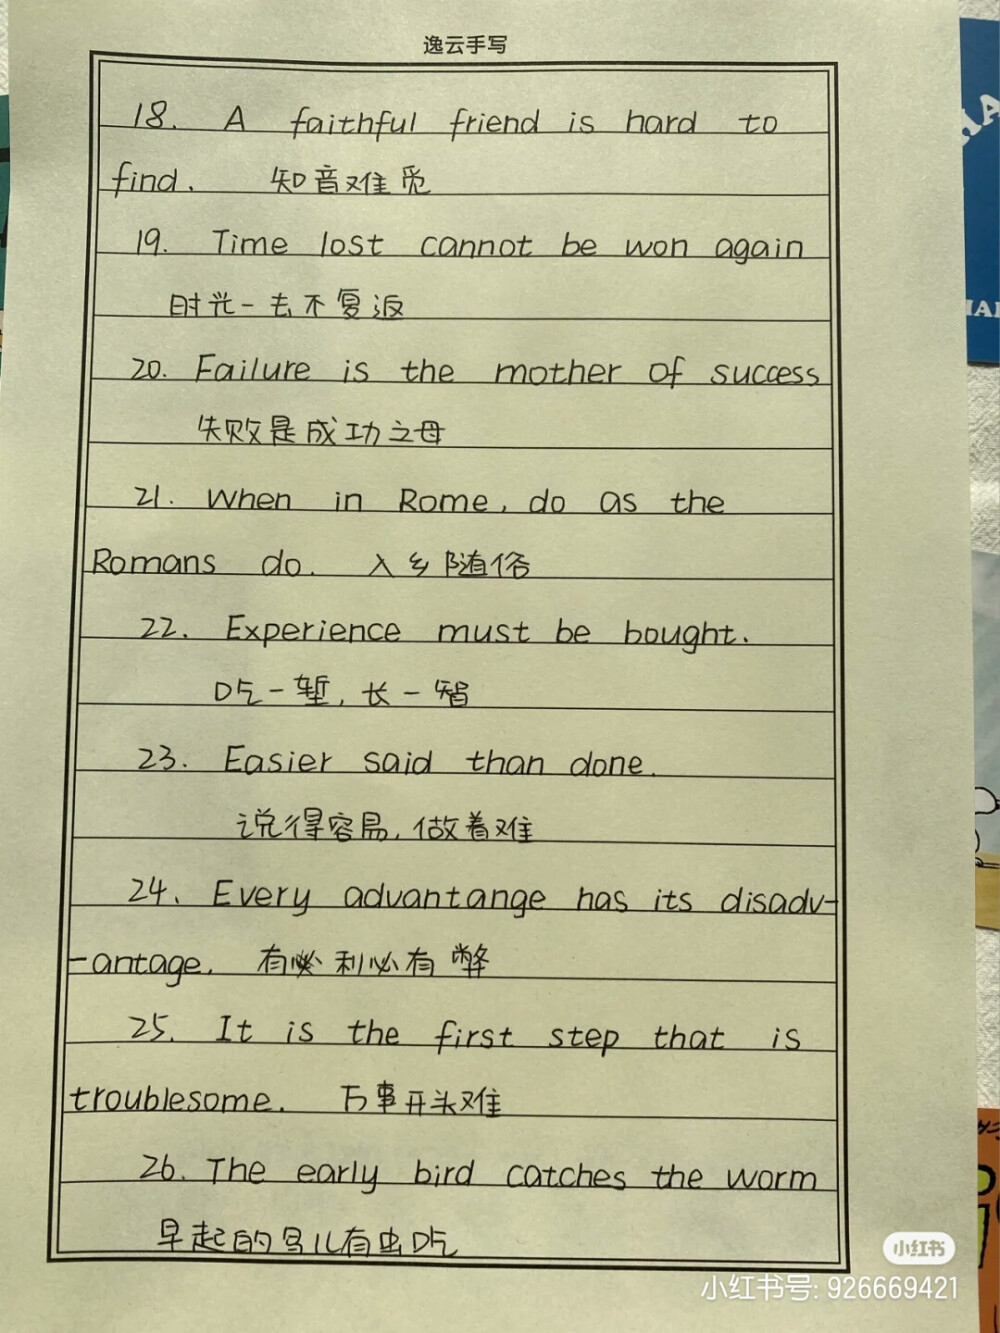 逸云手写
18. A faithful friend is hard to
find. 知音难觅
19. Time lost cannot be won again
时光一去不复返
20. Failure is the mother of success
失败是成功之母
21. When in Rome, do as the
Romans do. 入乡随俗
22. Experience must be bought.
吃一堑,长一智
23. Easier said than done.
说得容易,做着难
24. Every advantange has its disadv-
-antage. 有利必有弊
25. It is the first step that is
troublesome. 万事开头难
26. The early bird catches the worm
早起的鸟儿有虫吃
小红书
小红书号: 926669421